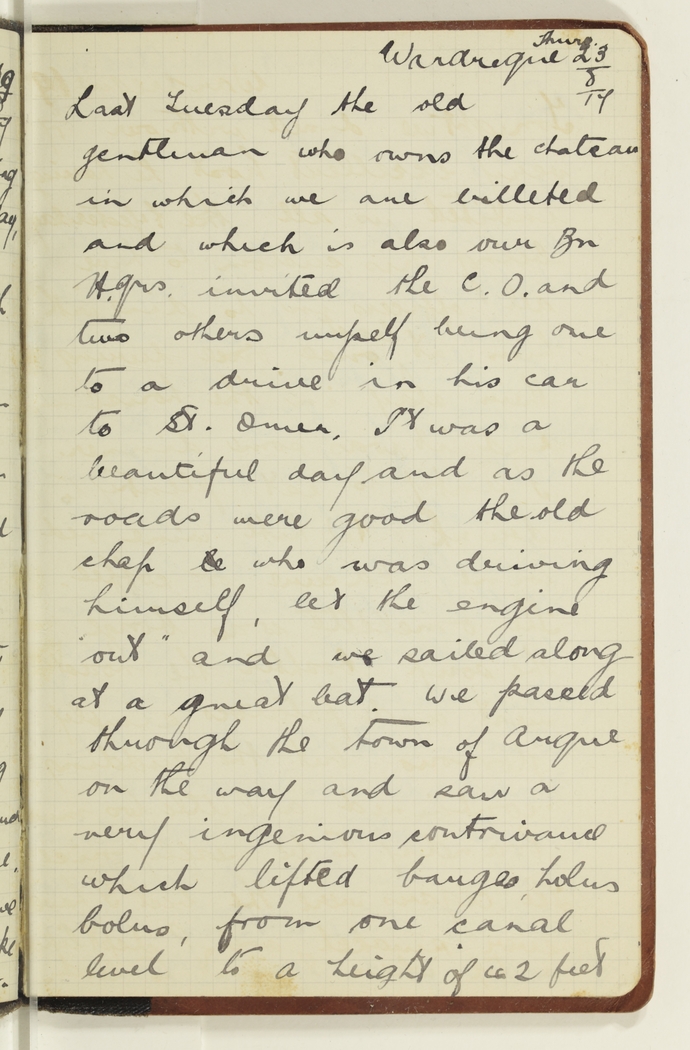 Wardreque Thurs. 23/8/17
Last Tuesday the old
gentleman who owns the chateau
in which we are billeted
and which is also our Bn
H.qrs. invited the C.O. and
two others myself being one
to a drive in his car
to St. Omer. It was a
beautiful day and as the
roads were good the old
chap who was driving
himself, let the engine
"out" and we sailed along
at a great bat. We passed
through the town of Arque
on the way and saw a
very ingenious contrivance
which lifted barges, holus
bolus, from one canal
level to a height of 2 feet